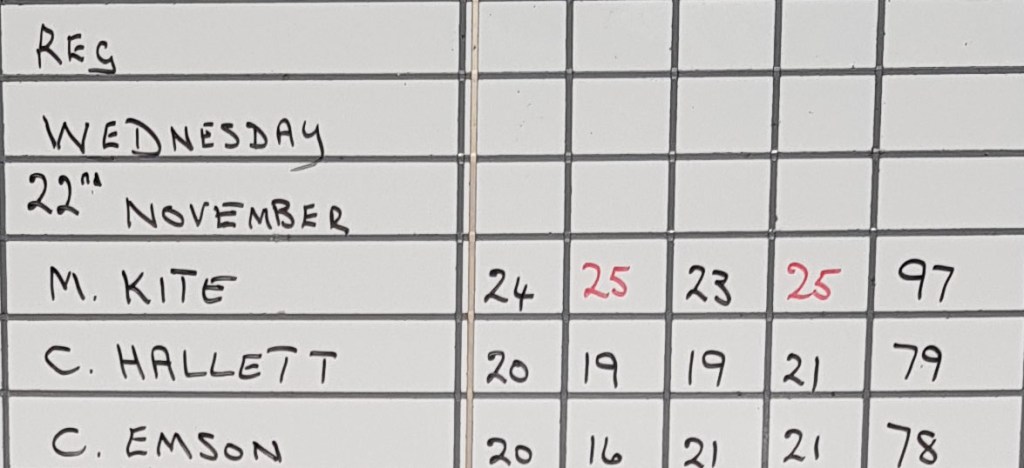 REG
WEDNESDAY
22nd NOVEMBER
M. KITE 24 25 23 25 97
C. HALLETT 20 19 19 21 79
C. EMSON 20 16 21 21 78